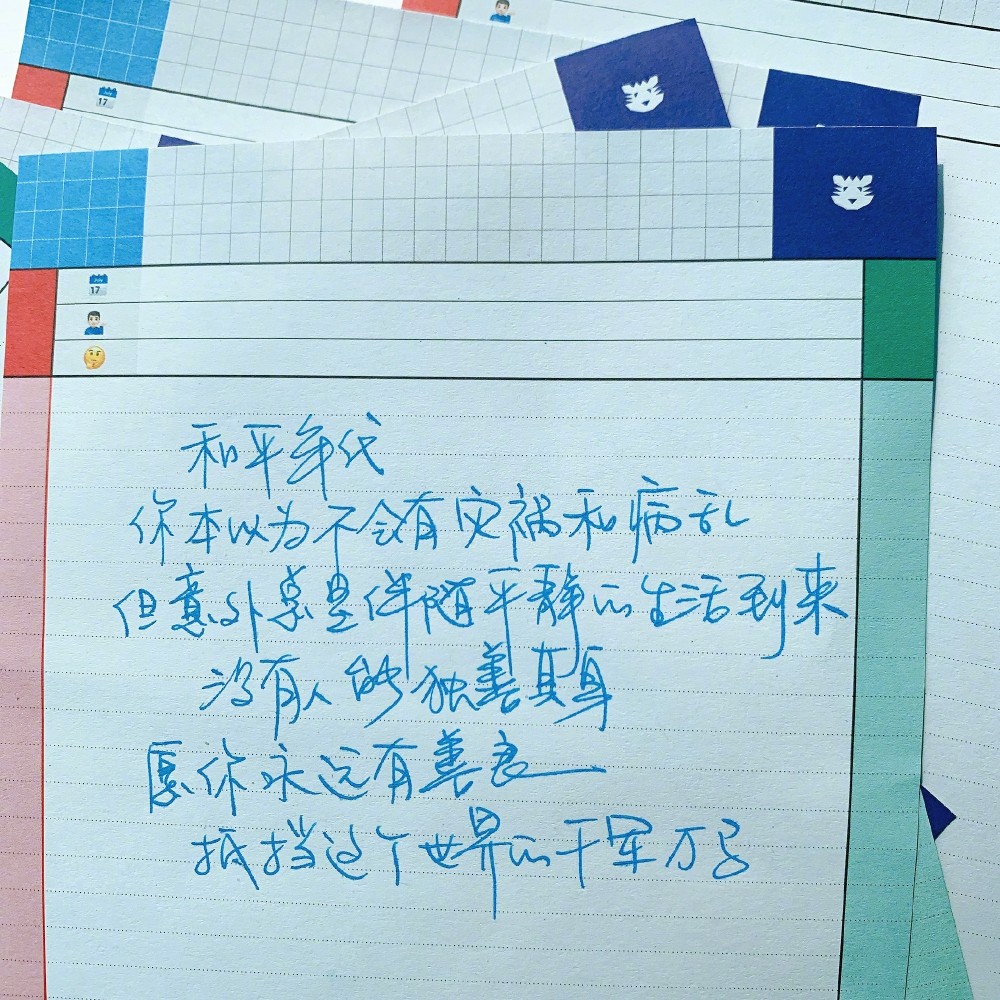 July
17
July
17
和平年代
你本以为不会有灾祸和病乱
但意外总是伴随平静的生活到来
没有人能独善其身
愿你永远有善良
抵挡这个世界的千军万马